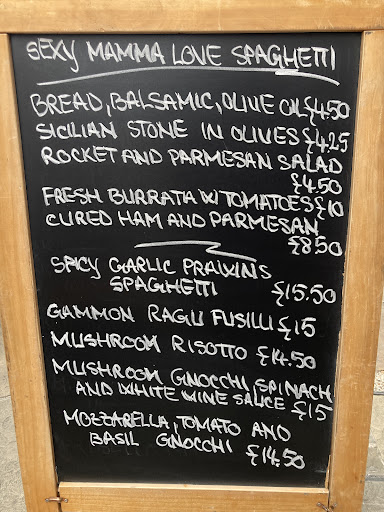 SEXY MAMMA LOVE SPAGHETTI
BREAD, BALSAMIC, OLIVE OIL £4.50
SICILIAN STONE IN OLIVES £4.25
ROCKET AND PARMESAN SALAD
£4.50
FRESH BURRATA W/ TOMATOES £10
CURED HAM AND PARMESAN
£8.50
SPICY GARLIC PRAWNS
SPAGHETTI £15.50
GAMMON RAGU FUSILLI £15
MUSHROOM RISOTTO £14.50
MUSHROOM GNOCCHI, SPINACH
AND WHITE WINE SAUCE £15
MOZZARELLA, TOMATO AND
BASIL GNOCCHI £14.50